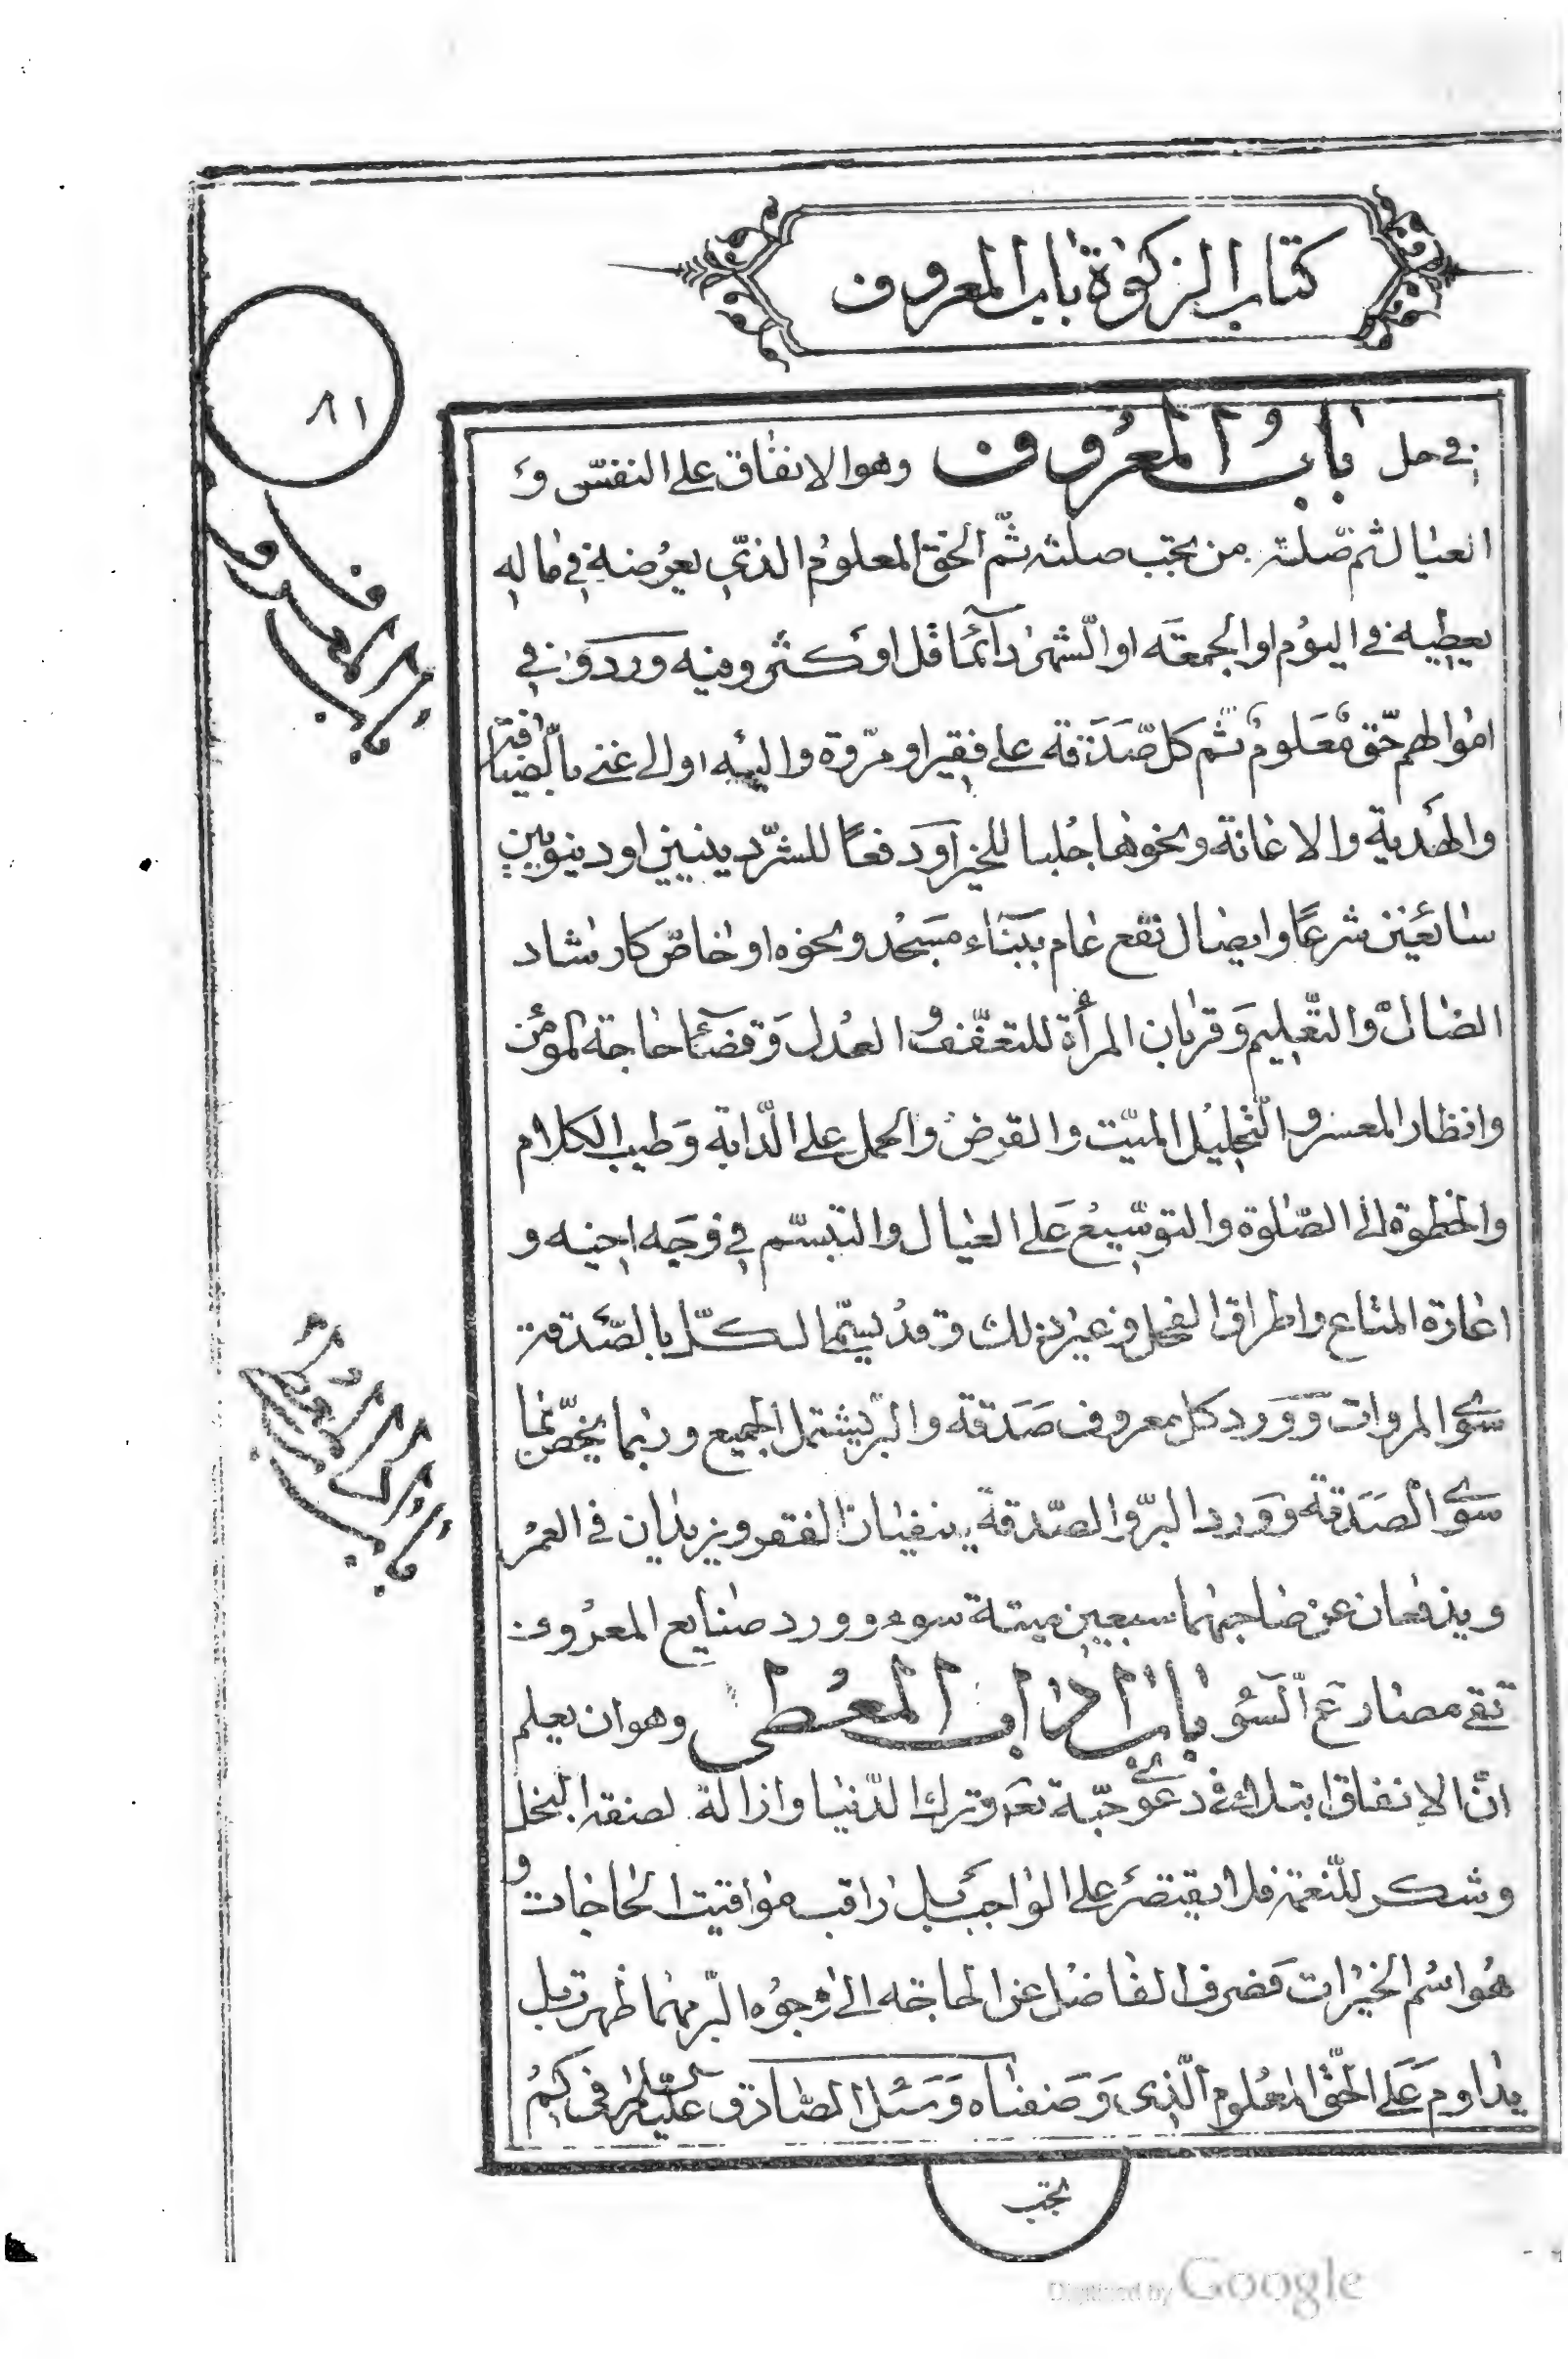 كتاب الزكوة باب المعروف
٨١
في حل باب المعروف وهو الانفاق على النفس و
العيال ثم صلته من يجب صلته ثم الحق المعلوم الذي يعرضه في ماله
يعطيه في اليوم او الجمعة او الشهر دائما قل او كثر وفيه ورد وفي
اموالهم حق معلوم ثم كل صدقة على فقير او مروة واليه او الى غني بالضيافة
والهدية والاعانة ونحوها جلبا للخير او دفعا للشر دينيين او دنيويين
سائغين شرعا وايصال نفع عام ببناء مسجد ونحوه او خاص كارشاد
الضال والتعليم وقربان المرأة للتعفف والعدل وقضاء حاجة المؤمن
وانظار المعسر والتحليل الميت والقرض والحمل على الدابة وطيب الكلام
والخطوة الى الصلوة والتوسيع على العيال والتبسم في وجه اخيه و
اعارة المتاع واطراق الفحل وغير ذلك وقد يسمى الكل بالصدقة
سوى المروات وورد كل معروف صدقة والبر يشتمل الجميع وربما يخص بما
سوى الصدقة وورد البر والصدقة ينفيان الفقر ويزيدان في العمر
ويدفعان عن صاحبهما سبعين ميتة سوء وورد صنايع المعروف
تقي مصارع السوء باب اداب المعطى وهو ان يعلم
ان الانفاق ابتلاء في دعوى حبه تعالى وترك الدنيا وازالة لصفة البخل
وشكر للنعمة فلا يقتصر على الواجب بل راقب مواقيت الحاجات و
هو اسم الخيرات فصرف الفاضل عن الحاجة الى وجوه البر مهما ظهرت بل
يداوم على الحق المعلوم الذي وصفناه وسئل الصادق عليه السلام في كم
تجب
باب المعروف
باب اداب المعطى